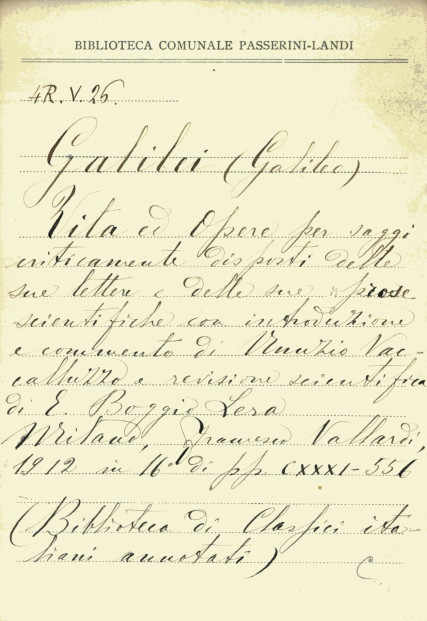 BIBLIOTECA COMUNALE PASSERINI-LANDI
4R. V. 26.
Galilei (Galileo)
Vita ed Opere per saggi
criticamente disposti delle
sue lettere e delle sue prose
scientifiche con introduzione
e commento di Nunzio Vac-
calluzzo e revisione scientifica
di E. Boggio Lera
Milano, Francesco Vallardi,
1912 in 16° di pp. CXXXI-556
(Biblioteca di Classici ita-
liani annotati) C